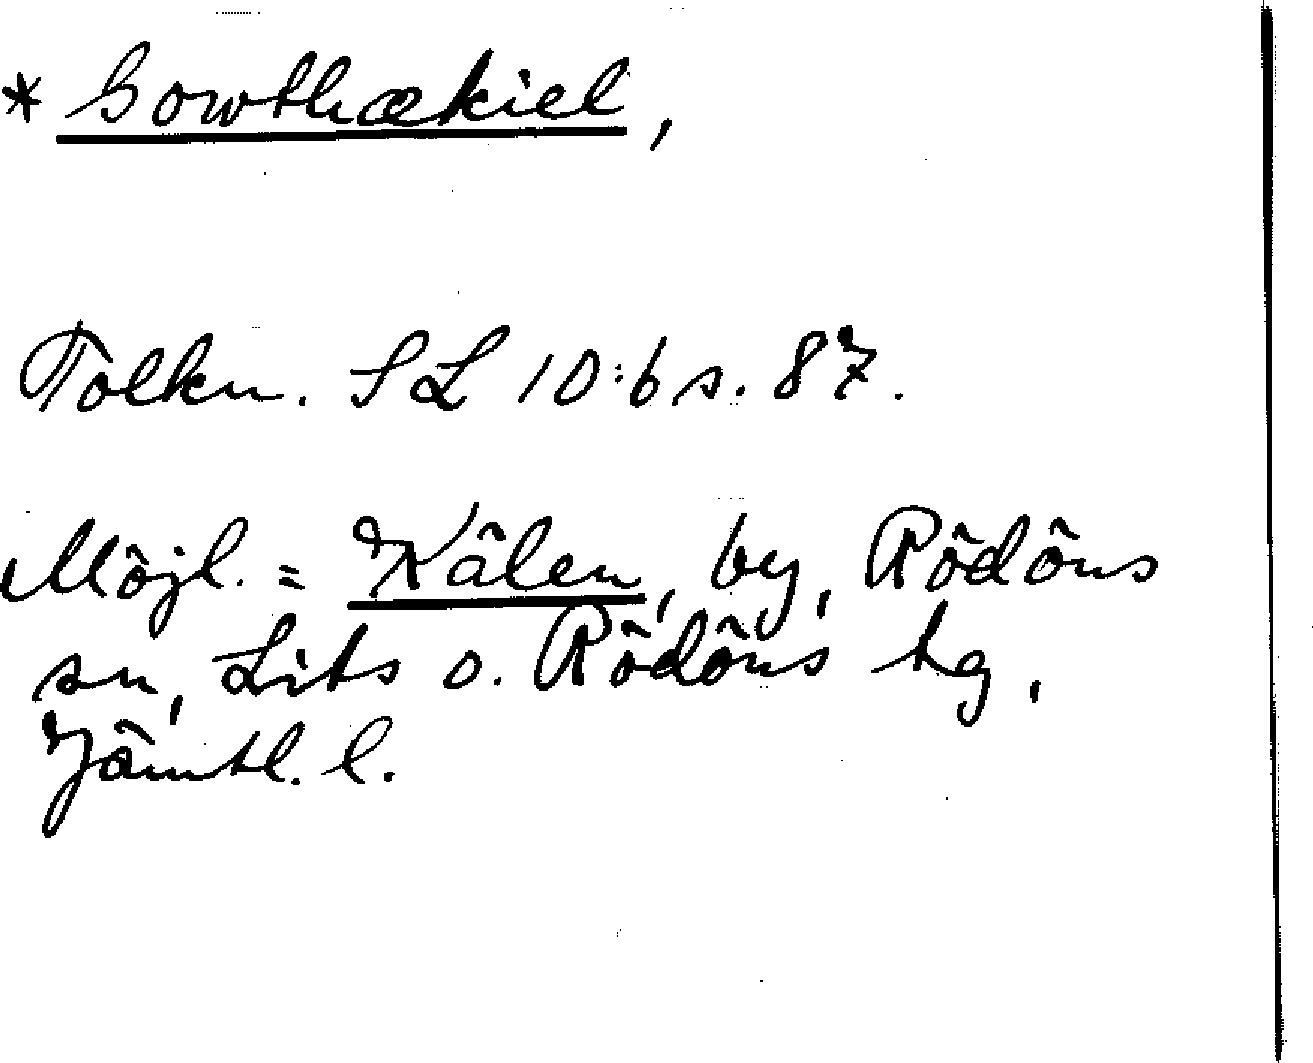 * Gowthækiel,
Tolkn. SL 10:6 s. 87.
Möjl. = Kälen, by, Rödöns
sn, Lits o. Rödöns tg,
Jämtl. l.